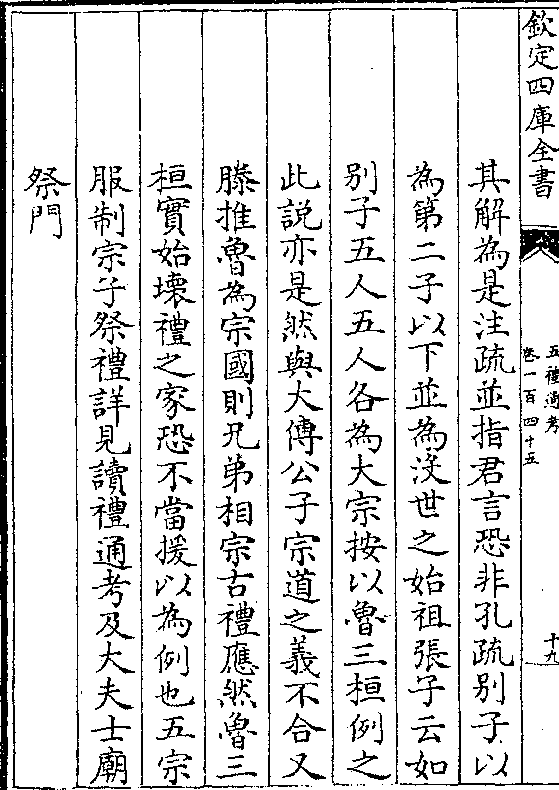 欽定四庫全書
五禮通考
卷一百四十五
十九
其解為是注疏並指君言恐非孔疏別子以
為第二子以下並為後世之始祖張子云如
別子五人五人各為大宗按以魯三桓例之
此說亦是然與大傳公子宗道之義不合又
滕推魯為宗國則兄弟相宗古禮應然魯三
桓實始壞禮之家恐不當援以為例也五宗
服制宗子祭禮詳見讀禮通考及大夫士廟
祭門